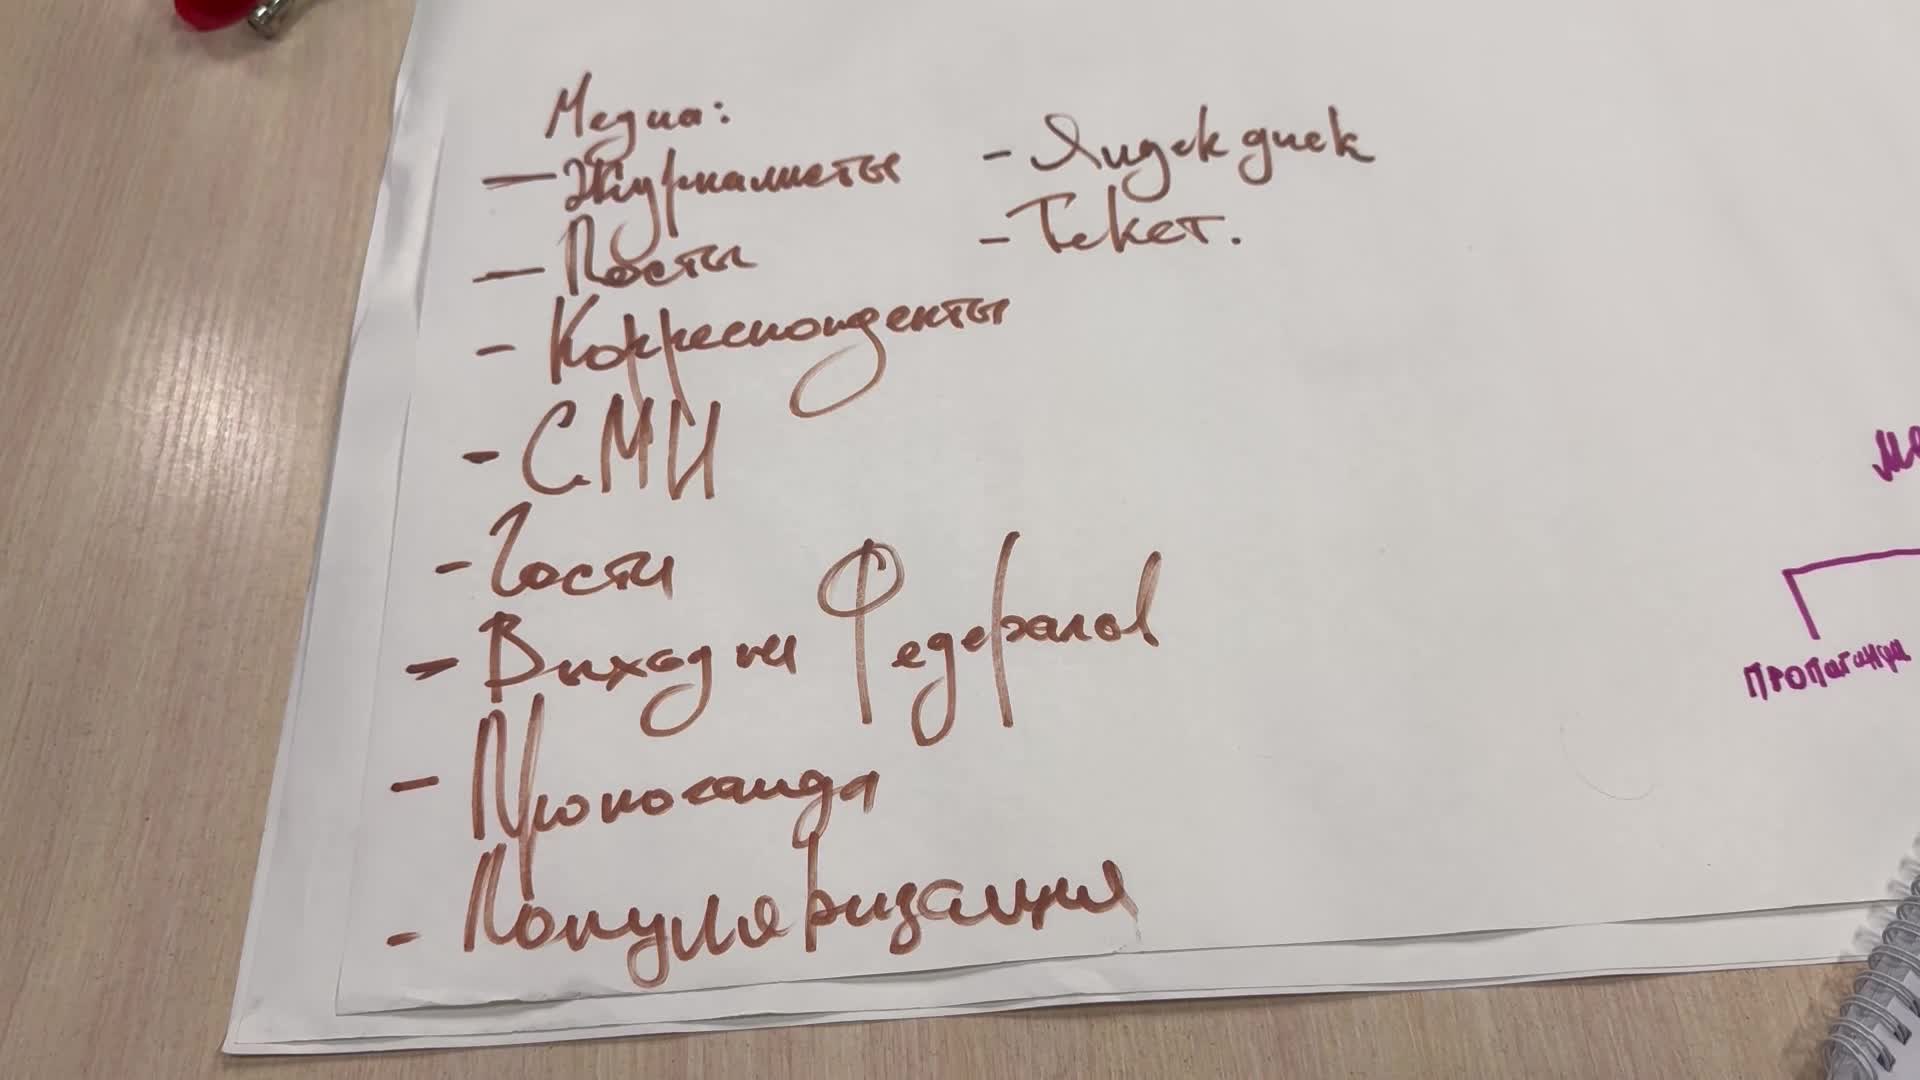 Медиа:
— Журналисты
— Посты
- Корреспонденты
- СМИ
- Гости
- Выход на Федералов
- Пропоганда
- Популяризация
- Яндек диск
- Текст.
Пропаганда